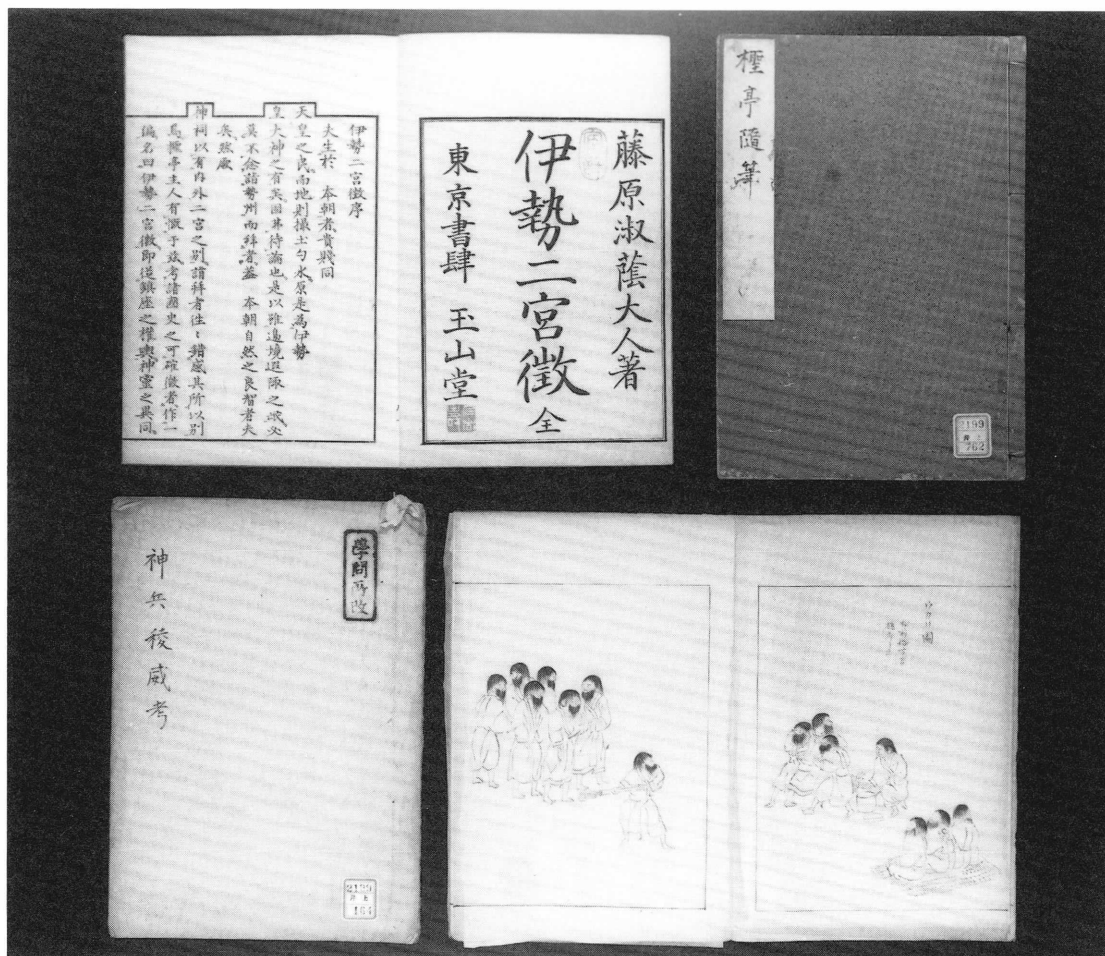 藤原淑蔭大人著
伊勢二宮徵 全
東京書肆 玉山堂
伊勢二宮徵序
夫生於 本朝者貴賤同
天皇之良而地則撮土勺水原是為伊勢
皇大神之有矣固弗待論也是以雖邊境遐陬之氓必
莫不念詣勢州而拜者蓋 本朝自然之良習者夫
矣然厥
神祠以有內外二宮之別詣拜者往〻錯惑其所以別
焉 亭主人有慨于玆考諸國史之可確徵者作一
編名曰伊勢二宮徵即從鎮座之權輿神靈之異同
檉亭隨筆
2199
井上
762
學問所改
神兵稜威考
2199
井上
164